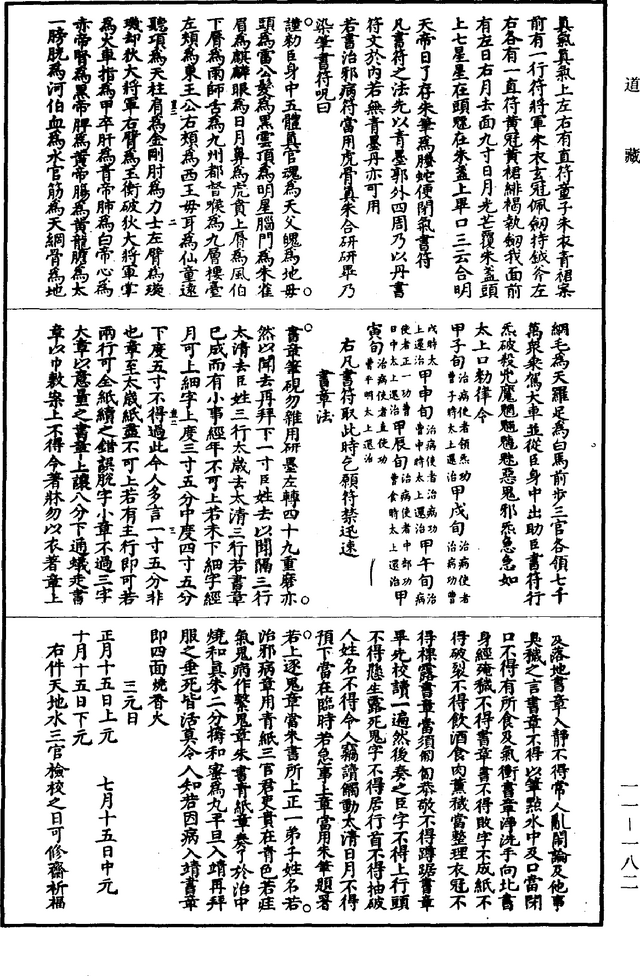 道藏
真氣真氣上左右有直符童子朱衣青裙案
前有一行符將軍朱衣玄冠佩劒持鉞斧左
右各有一直符黃冠黃裙緋褐執劒我面前
有左日右月去面九寸日月光芒覆朱蓋頭
上七星星在頭魁在朱蓋上畢口三云合明
天帝日了存朱筆為騰蛇便閉氣書符
凡書符之法先以青墨郭外四周乃以丹書
符文於內若無青墨丹亦可用
若書治邪病符當用虎骨真朱合研研畢乃
染筆書符呪曰
謹勑臣身中五體真官魂為天父魄為地母
頭為雷公髮為黑雲頂為明星腦門為朱雀
眉為麒麟眼為日月鼻為虎賁上脣為風伯
下脣為雨師舌為九州都督喉為九層樓臺
左頰為東王公右頰為西王母耳為仙童遠
聽項為天柱肩為金剛肘為力士左臂為璇
璣却狄大將軍右臂為玉衡破狄大將軍掌
為火車指為甲卒肝為青帝肺為白帝心為
赤帝腎為黑帝脾為黃帝腸為黃龍膽為太
一膀胱為河伯血為水官筋為天綱骨為地
網毛為天羅足為白馬前步三官各領七千
萬眾乘駕大車並從臣身中出助臣書符行
炁破殺兇魔魍魎魑魅惡鬼邪炁急急如
太上口勑律令
甲子旬治病使者領炁功曹子時太上還治甲戌旬治病使者治病功曹
戌時太上還治甲申旬治病使者治病功曹申時太上還治甲午旬治病
使者正一功曹日中太上還治甲辰旬治病使者中部功曹食時太上還治甲
寅旬治病使者直使功曹平明太上還治
右凡書符取此時乞願符禁迅速
書章法
書章筆硯勿雜用研墨左轉四十九重磨亦
然以聞去再拜下一寸臣姓去以聞隔三行
太清去臣姓三行太歲去太清三行若書章
已成而有小事經年不可上若未下細字經
月可上細字上度三寸五分中度四寸五分
下度五寸不得過此今人多言一寸五分非
也章至太歲紙盡不可上若有主行即可若
兩行可全紙續之錯誤脫字小章不過三字
大章以意量之書章上讓八分下通蟻走書
章以巾敷案上不得令著牀勿以衣著章上
及落地書章入靜不得常人亂鬧論及他事
臭穢之言書章不得以筆點水中及口當閉
口不得有所食及氣衝書章淨洗手向北書
身經殗穢不得書章書不得敗字不成紙不
得破裂不得飲酒食肉薰穢當整理衣冠不
得裸露書章當須匍匐恭敬不得蹲踞書章
畢先校讀一遍然後奏之臣字不得上行頭
不得懸生露死鬼字不得居行首不得抽破
人姓名不得令人竊讀觸動太清日月不得
預下當在臨時若急事上章當用朱筆題署
若上逐鬼章當朱書所上正一弟子姓名若
治邪病章用青紙三官君吏貴在青色若疰
氣鬼病作繫鬼章朱書青紙章奏了於治中
燒和真朱二分擣和蜜為丸平旦入靖再拜
服之垂死皆活莫令人知若因病入靖書章
即四面燒香火
三元日
正月十五日上元　七月十五日中元
十月十五日下元
右件天地水三官檢校之日可修齋祈福
一一—一八二